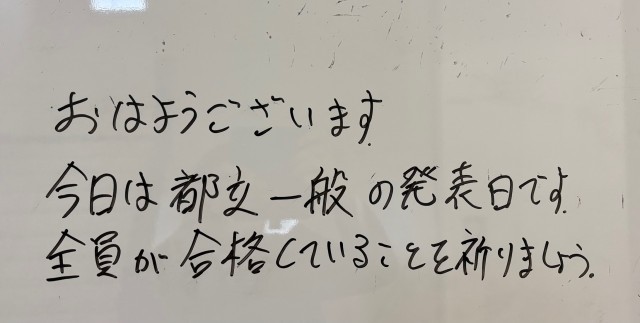 おはようございます
今日は都立一般の発表日です.
全員が合格していることを祈りましょう.